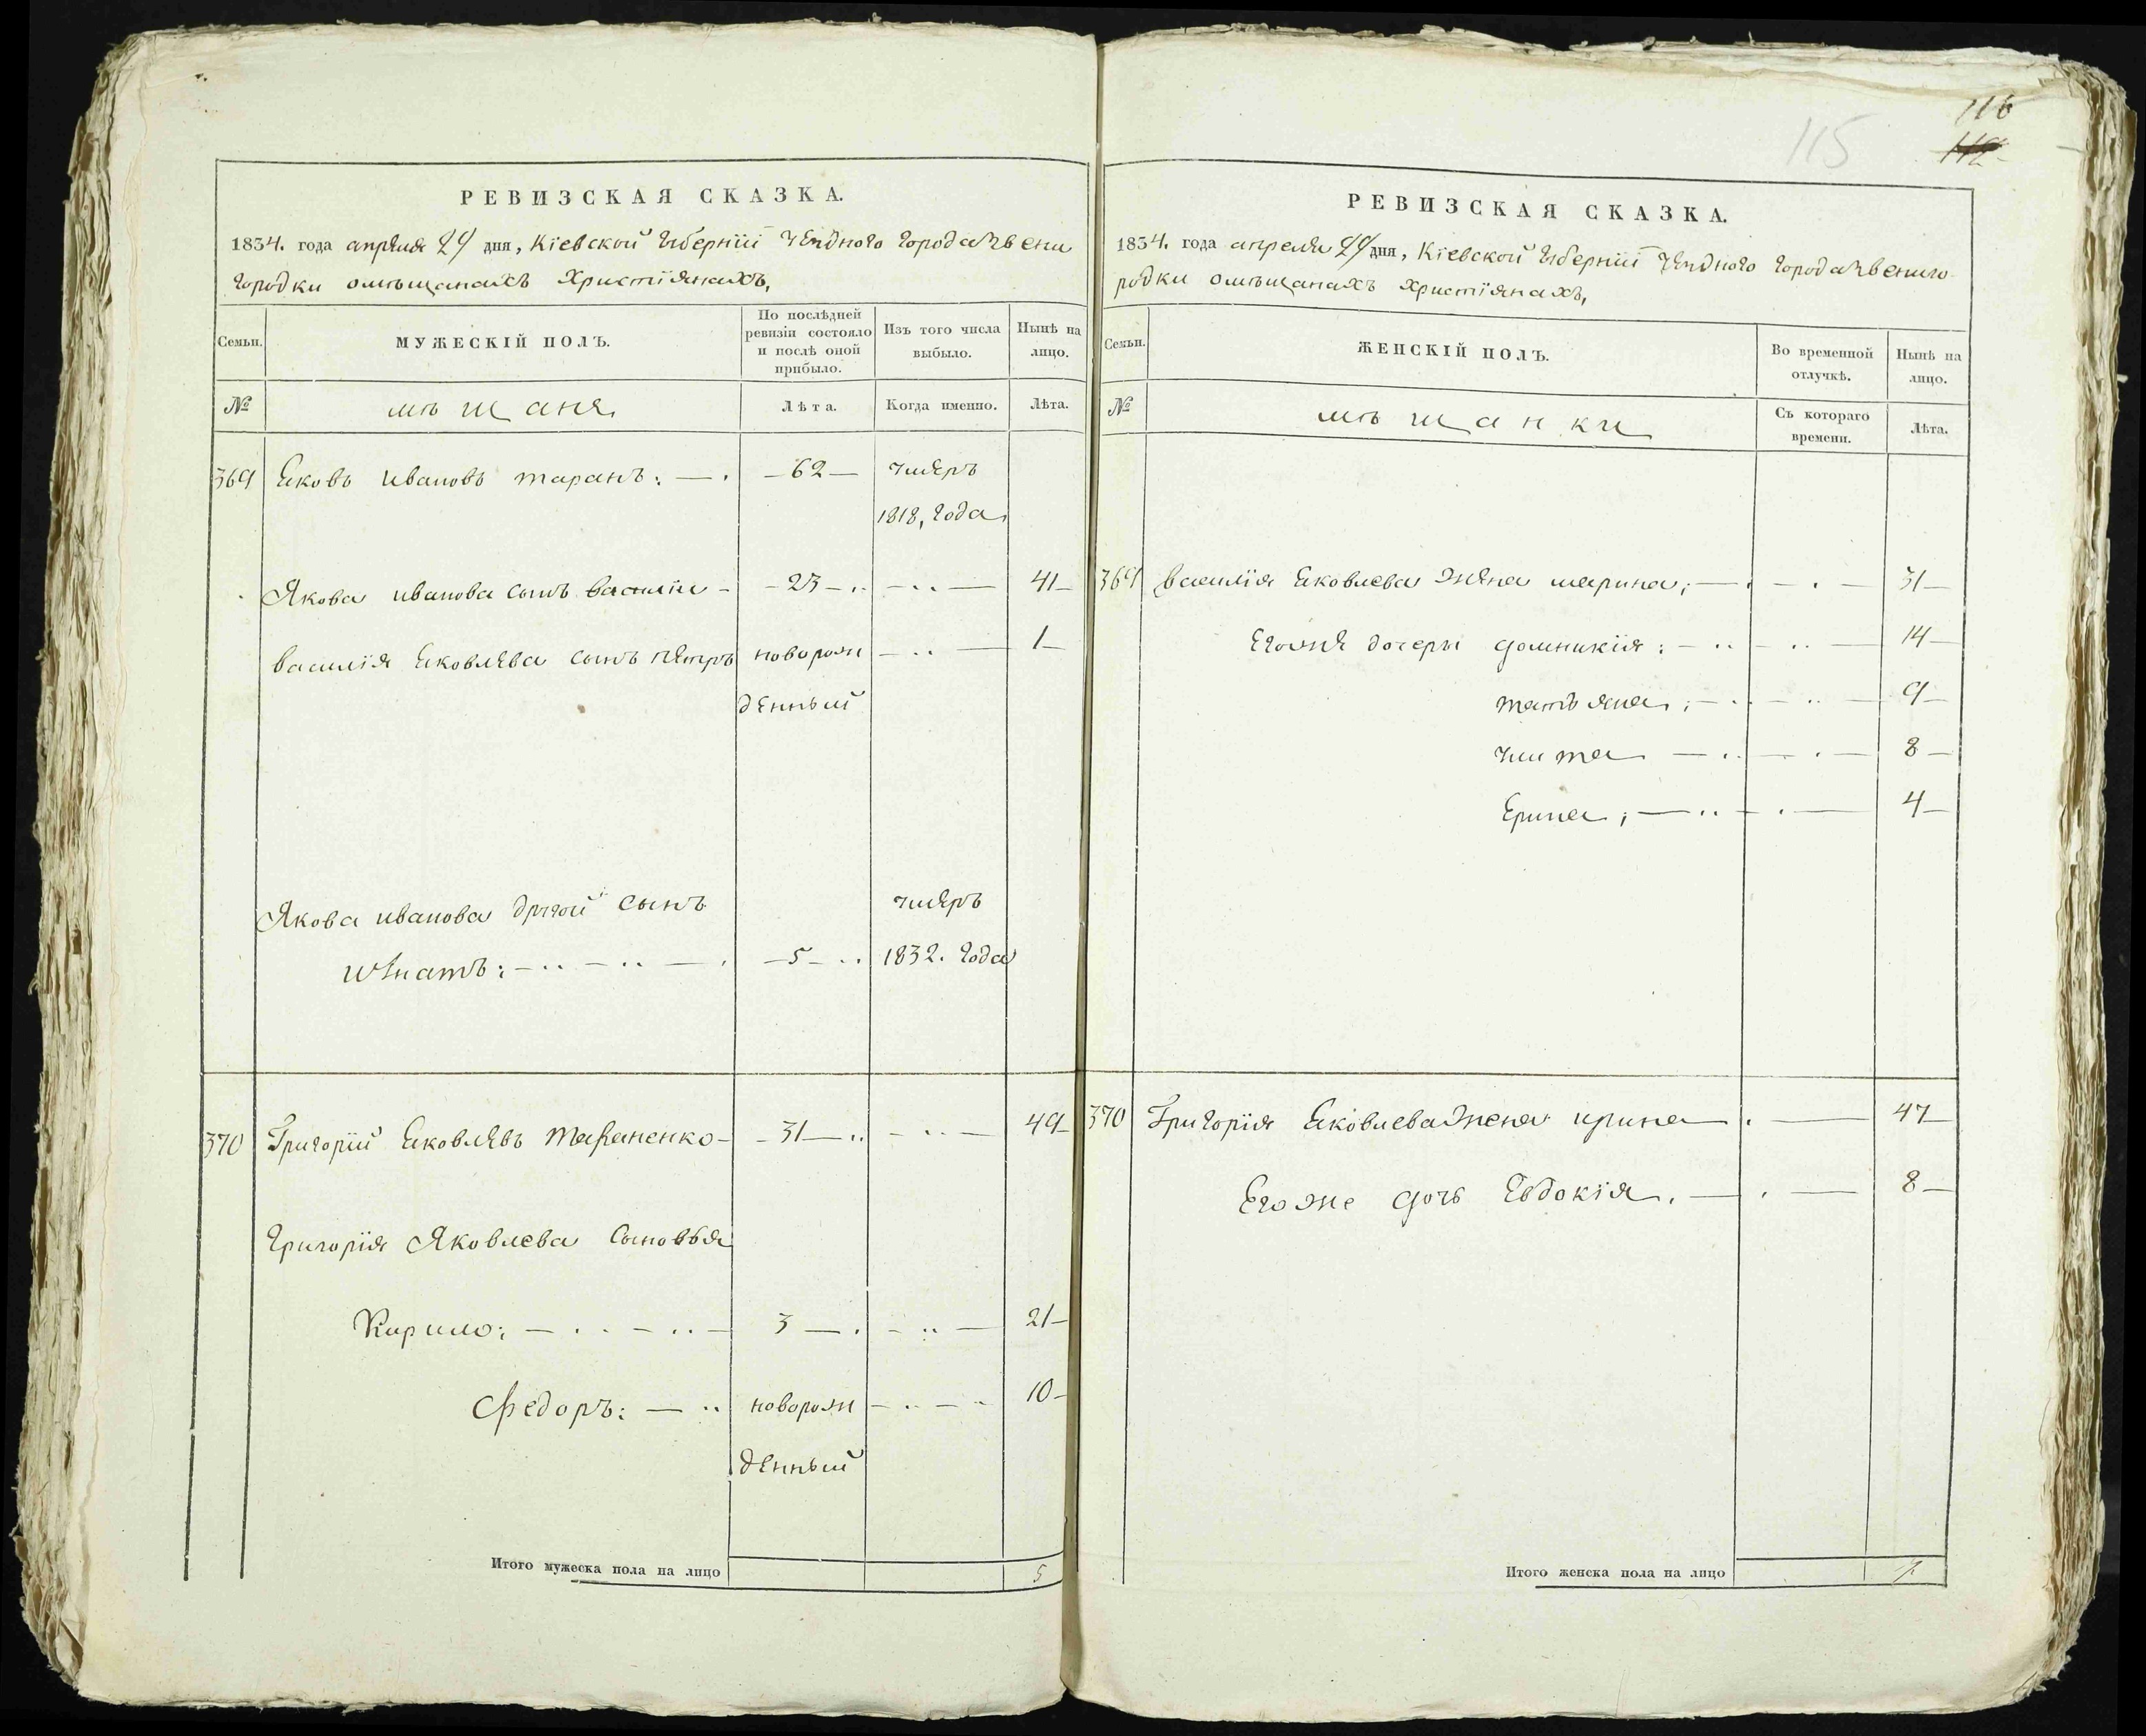 116
115
РЕВИЗСКАЯ СКАЗКА.
1834. года апрѣля 24 дня, Кіевской Губерніи уѣздного города Звени
городки омѣщанахъ христіянахъ,
Семьи.
МУЖЕСКІЙ ПОЛЪ.
По послѣдней ревизіи состояло и послѣ оной прибыло.
Изъ того числа выбыло.
Нынѣ на лицо.
№
мѣщане
Лѣта.
Когда именно.
Лѣта.
369 Яковъ ивановъ таранъ: — 62 — умеръ
1818, года
Якова иванова сынъ василiи - 23 - 41
василія Яковлева сынъ петръ новорож 1
денный
Якова иванова другой сынъ умеръ
игнатъ: - 5 - 1832. года
370 Григорій Яковлевъ Тараненко - 31 - 49
григорія Яковлева сыновья
Кирило: 3 - 21
Федоръ: новорож 10
денный
Итого мужеска пола на лицо 5
РЕВИЗСКАЯ СКАЗКА.
1834. года апреля 24 дня, Кіевской Губерніи уѣздного города Звениго
родки омѣщанахъ христіянахъ,
Семьи.
ЖЕНСКІЙ ПОЛЪ.
Во временной отлучкѣ.
Нынѣ на лицо.
№
мѣщанки
Съ котораго времени.
Лѣта.
369 василія Яковлева жена марина; 31
Егоже дочери домникія: 14
татьяна; 9
улита 8
Ерина; 4
370 Григорія Яковлева жена ирина 47
Егоже дочь Евдокія. 8
Итого женска пола на лицо 7